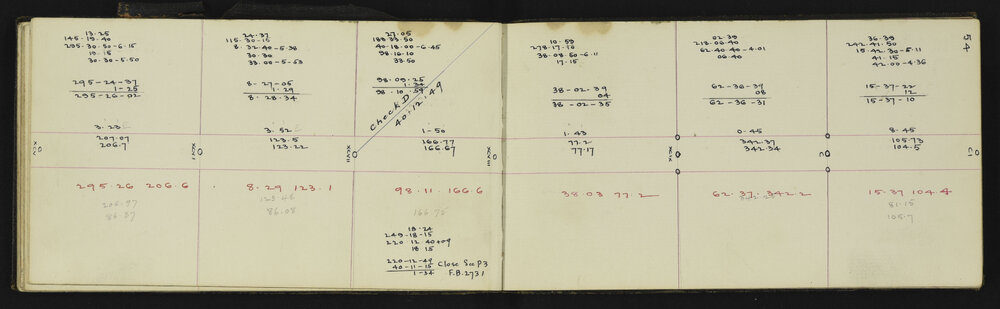 13.25
145-19-40
295-30-50-6-15
19.15
30-30-5-50
295-24-37
1-25
295-26-02
3.23
207.07
206.7
295.26 206.6
206.97
86.27
24-37
115-30-10
8-32-40-5-38
30-30
33-00-5-53
8-27-05
1-29
8-28-34
3.52
123.5
123.22
XCVI
8.29 123.1
123.46
86.08
27-05
188 33-50
40-18-00-6-45
98-16-10
33-50
98-09-25
1-34
98-10-59
Check D
40-12-49
1-50
166.77
166.67
XCVII
98.11 166.6
166.72
18-24
249-18-15
220 12 40+09
18 15
220-12-49 Close See P3
40-11-15
1-34 F.B. 2731
XCVIII
10-59
278-17-10
38-08-50-6-11
17-15
38-02-39
04
38-02-35
1.43
77.2
77.17
38.03 77.2
XCIX
02-39
213-06-40
62-40 40-4-01
06-40
62-36-39
08
62-36-31
0-45
342.37
342.34
62.37 342.2
C
54
36-39
242-41-50
15-42-30-5-11
41-15
42-00-4-36
15-37-22
12
15-37-10
8-45
105.73
104.5
CI
15.37 104.4
81.15
105.7